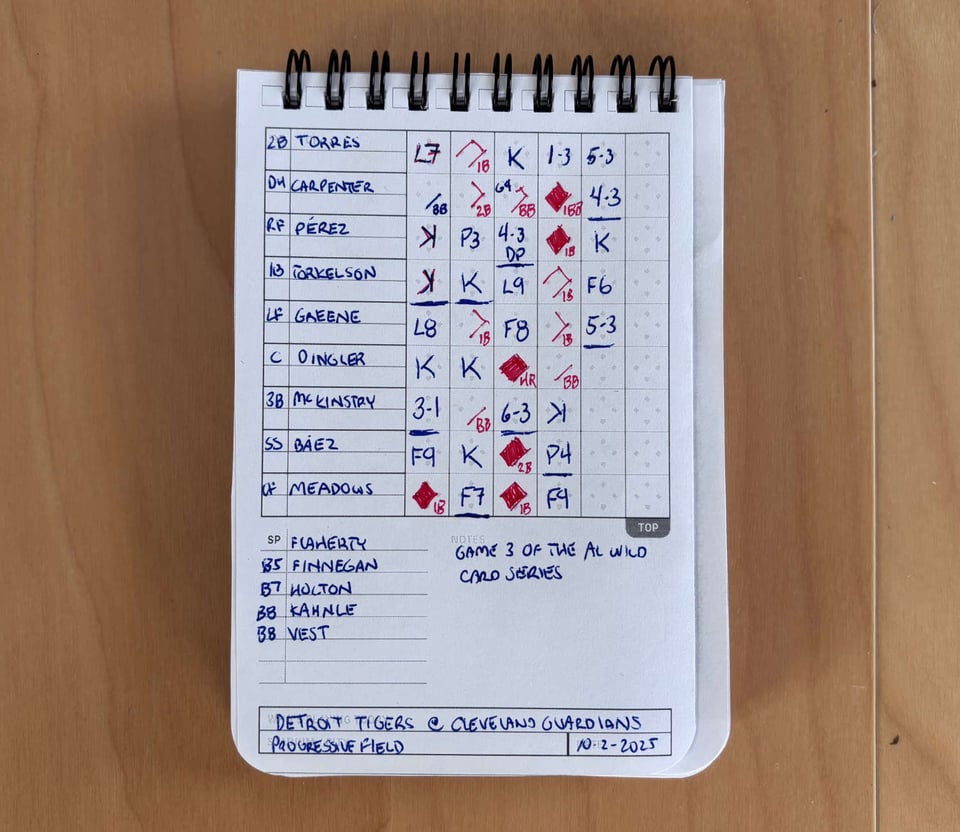 2B TORRES L7 1B K 1-3 5-3
DH CARPENTER BB 2B 64 BB IBB 4-3
RF PÉREZ K P3 4-3 DP 1B K
1B TORKELSON K K L9 1B F6
LF GREENE L8 1B F8 1B 5-3
C DINGLER K K HR BB
3B McKINSTRY 3-1 BB 6-3 K
SS BÁEZ F9 K 2B P4
CF MEADOWS 1B F7 1B F9
TOP
SP FLAHERTY
B5 FINNEGAN
B7 HOLTON
B8 KAHNLE
B8 VEST
NOTES
GAME 3 OF THE AL WILD
CARD SERIES
DETROIT TIGERS @ CLEVELAND GUARDIANS
PROGRESSIVE FIELD 10-2-2025